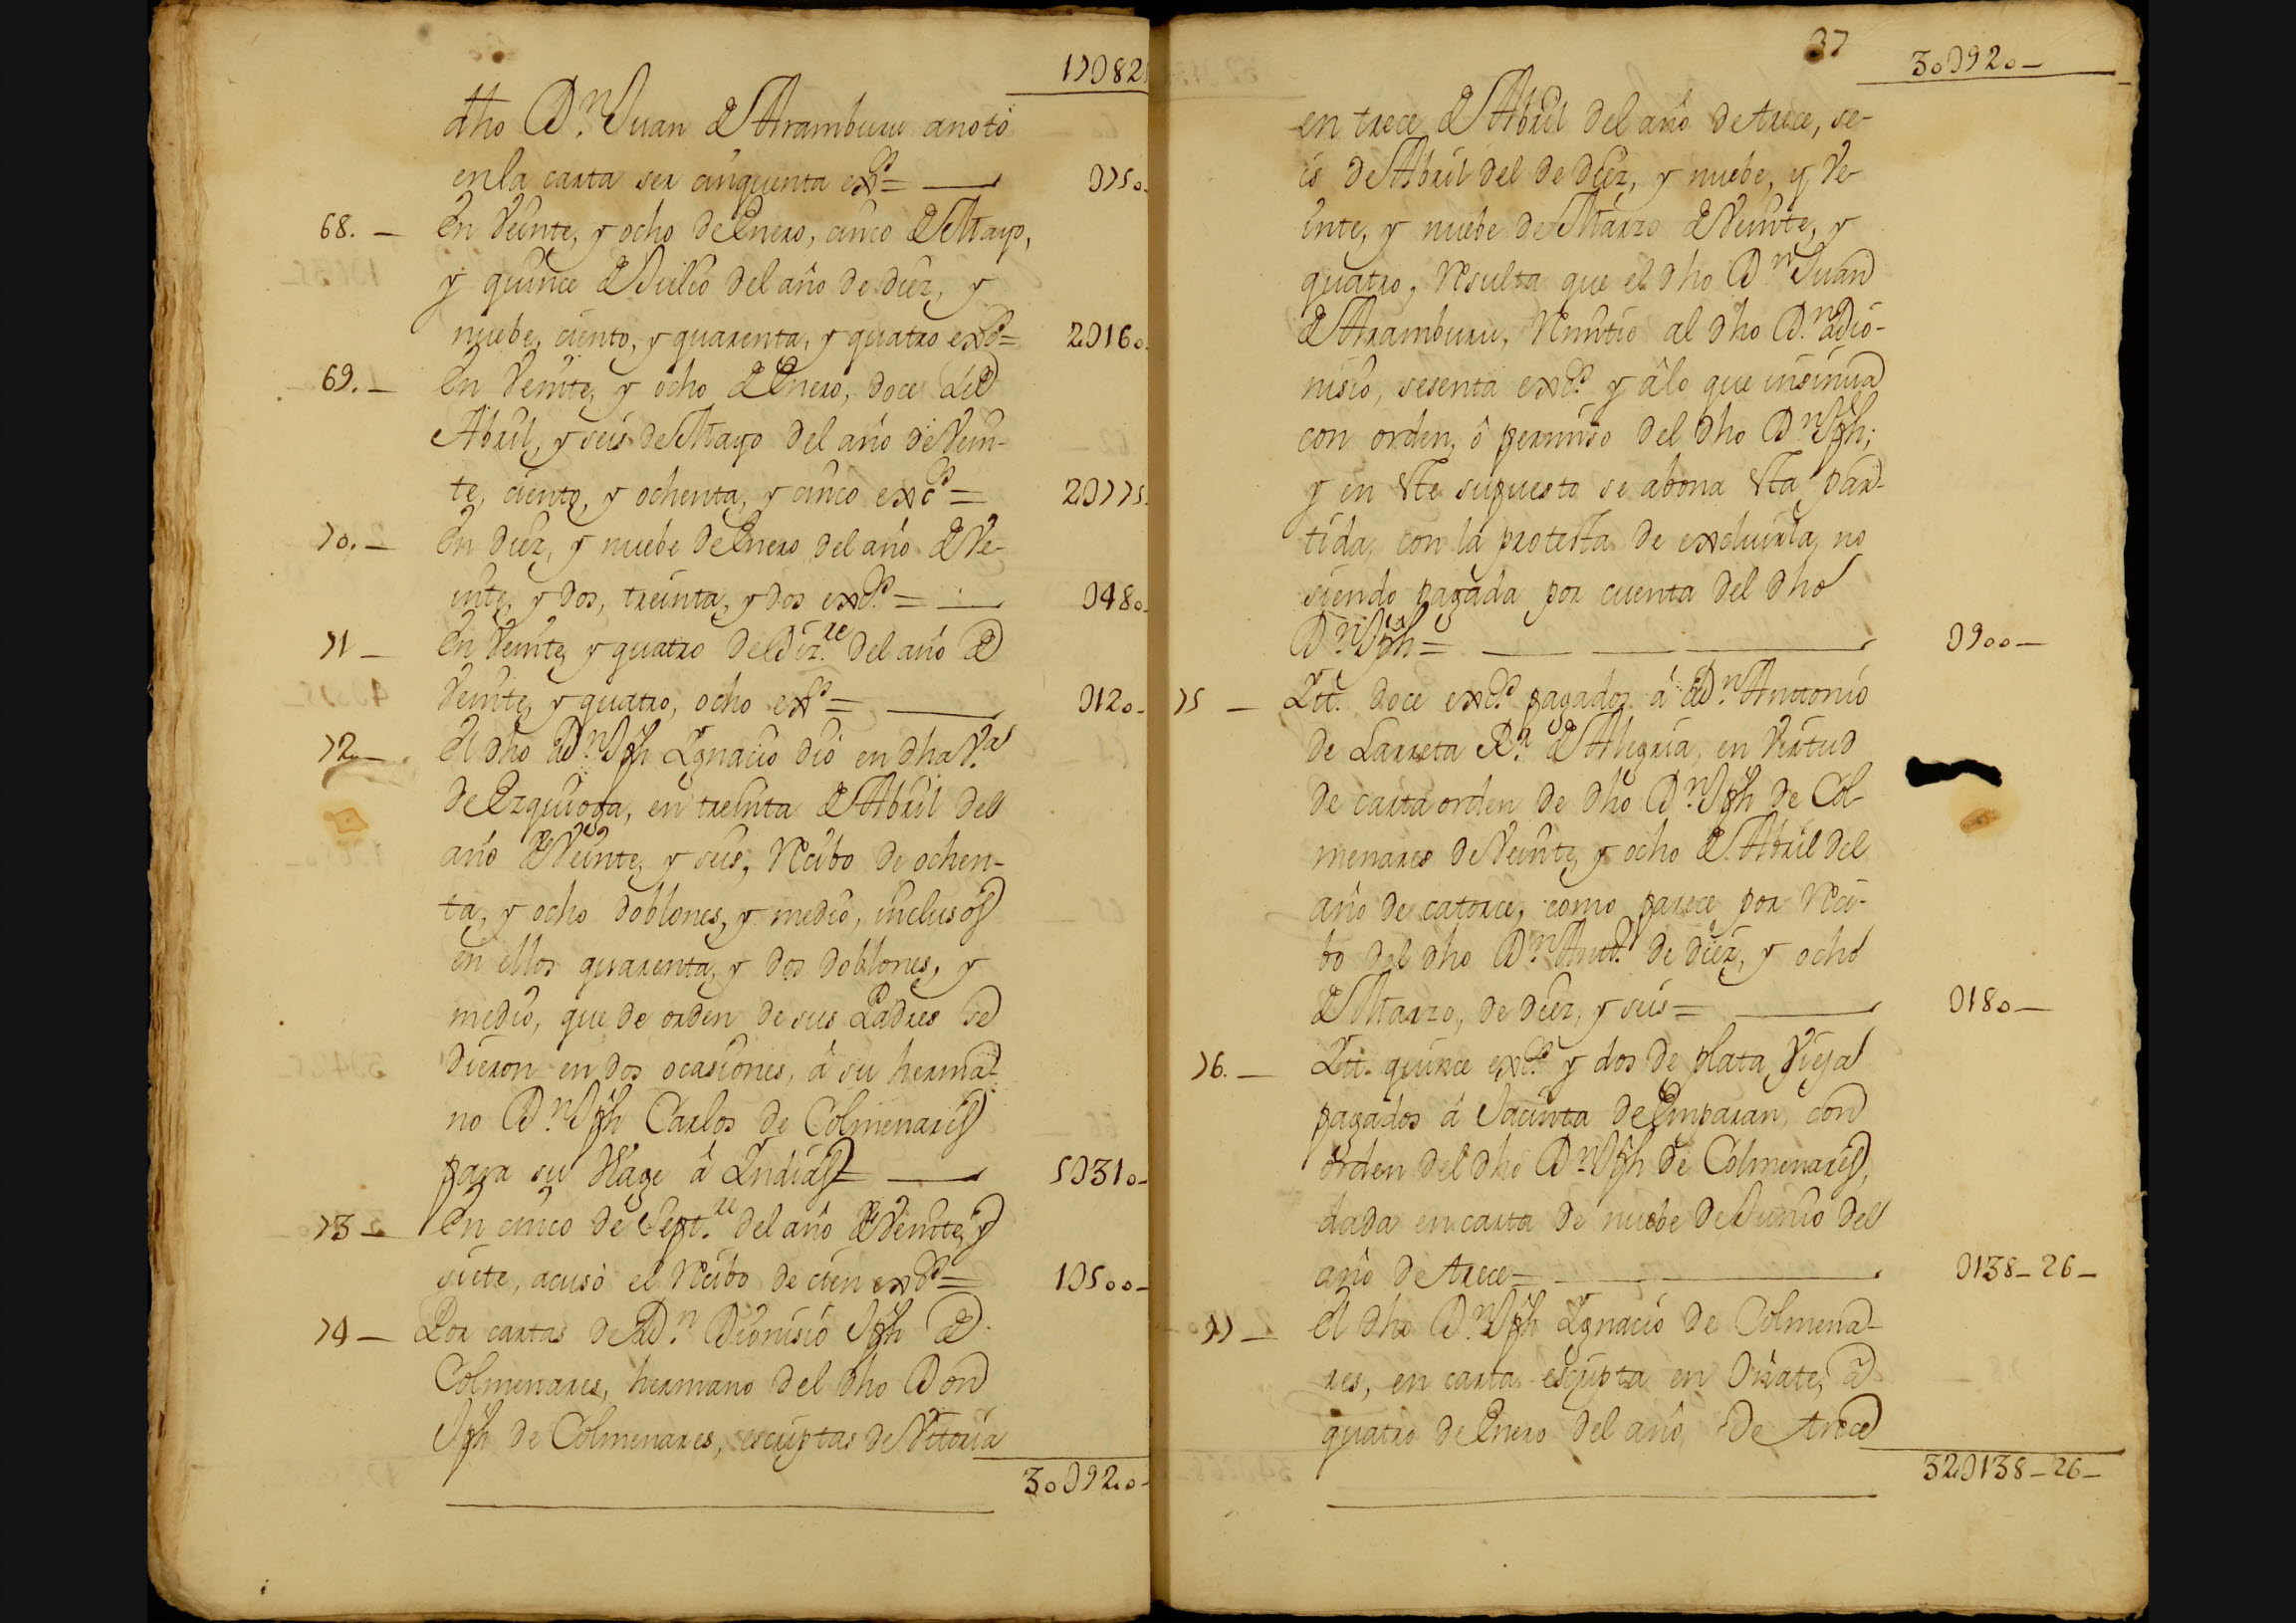 17U82
dho Dn. Juan de Aramburu anotó
en la carta ser cinquenta exdos = U750.
68. — En Veinte, y ocho de Enero, cinco de Mayo,
y quince de Julio del año de diez, y
nuebe, ciento, y quarenta, y quatro exdos = 2U160.
69. — En Veinte, y ocho de Enero, doce de
Abril, y seis de Mayo del año de Vein-
te, ciento, y ochenta, y cinco excdos = 2U775.
70. — En diez, y nuebe de Enero del año de Ve-
inte, y dos, treinta, y dos exdos = U480-
71 — En Veinte, y quatro de Dizre. del año de
Veinte, y quatro, ocho exdos = U120-
72 — El dho Dn. Jph Ignacio dió en dha Va.
de Ezquioga, en treinta de Abril del
año de Veinte, y seis, Recibo de ochen-
ta, y ocho doblones, y medio, inclusos
en ellos quarenta, y dos doblones, y
medio, que de orden de sus Padres se
dieron en dos ocasiones, á su herma-
no Dn. Jph Carlos de Colmenares
para su Viage â Indias = 5U310-
73 — En cinco de Septre. del año de Veinte, y
siete, acusó el Recibo de cien exdos = 1U500-
74 — Por cartas de Dn. Dionisio Jph de
Colmenares, hermano del dho Don
Jph de Colmenares, escriptas de Vitoria
30U920-
37 30U920-
en trece de Abril del año de trece, se-
is de Abril del de diez, y nuebe, y Ve-
inte, y nuebe de Marzo de Veinte, y
quatro, Resulta que el dho Dn. Juan
de Aramburu, Remitio al dho Dn. Dio-
nisio, sesenta excdos. y â lo que insinua
con orden, ô permiso del dho Dn. Jph;
y en Este supuesto se abona Esta par-
tida, con la protesta de excluirla, no
siendo pagada por cuenta del dho
Dn. Jph = U900-
75 — Itt. doce excdos. pagados á Dn. Antonio
de Larreta Rr. de Alegria, en Virtud
de carta orden de dho Dn. Jph de Col-
menares de Veinte, y ocho de Abril del
año de catorce, como parece por Reci-
bo del dho Dn. Antto. de diez, y ocho
de Marzo, de diez, y seis = U180-
76. — Itt. quince excdos. y dos de plata Vieja
pagados á Jacinta de Emparan, con
orden del dho Dn. Jph de Colmenares,
dada en carta de nuebe de Junio del
año de trece = U138-26-
77 — El dho Dn. Jph Ignacio de Colmena-
res, en carta escripta en Oñate, â
quatro de Enero del año de trece
32U138-26-